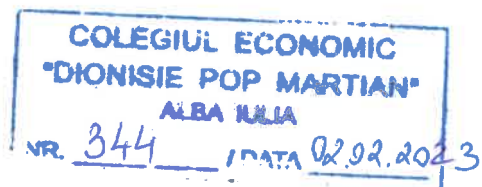 COLEGIUL ECONOMIC
"DIONISIE POP MARTIAN"
ALBA IULIA
NR. 344 / DATA 02.02.2023